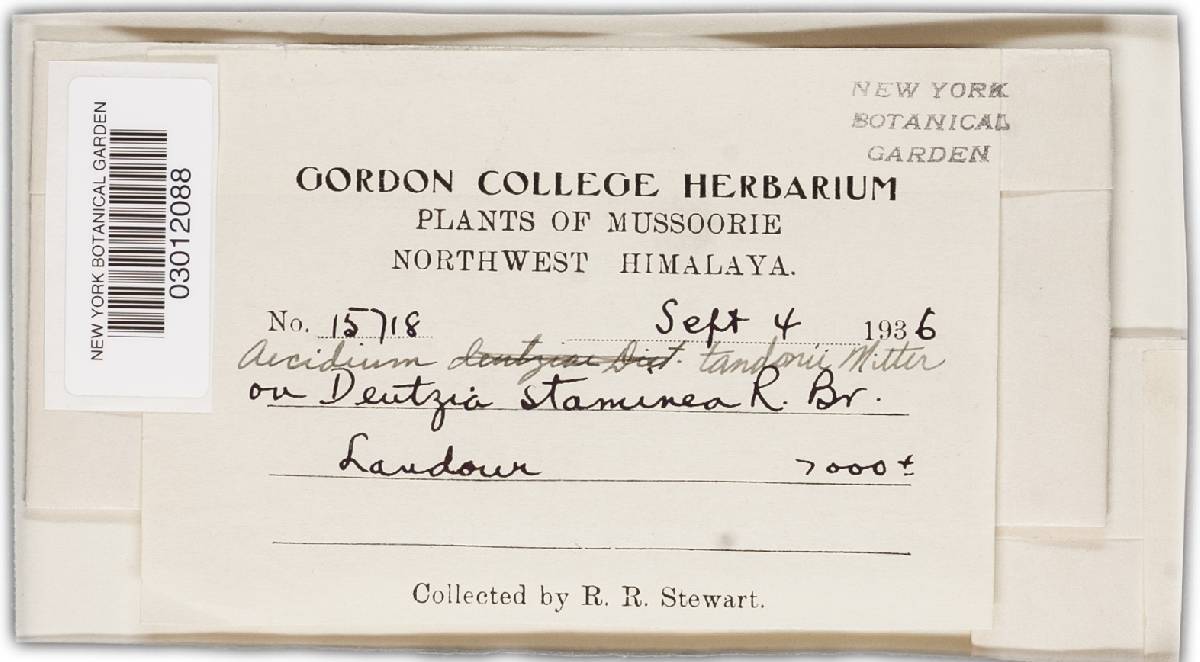 NEW YORK BOTANICAL GARDEN
03012088
NEW YORK
BOTANICAL
GARDEN
GORDON COLLEGE HERBARIUM
PLANTS OF MUSSOORIE
NORTHWEST HIMALAYA.
No. 15718 Sept 4 1936
Aecidium deutziae Diet. tandonii Mitter
on Deutzia staminea R. Br.
Landour 7000 ±
Collected by R. R. Stewart.